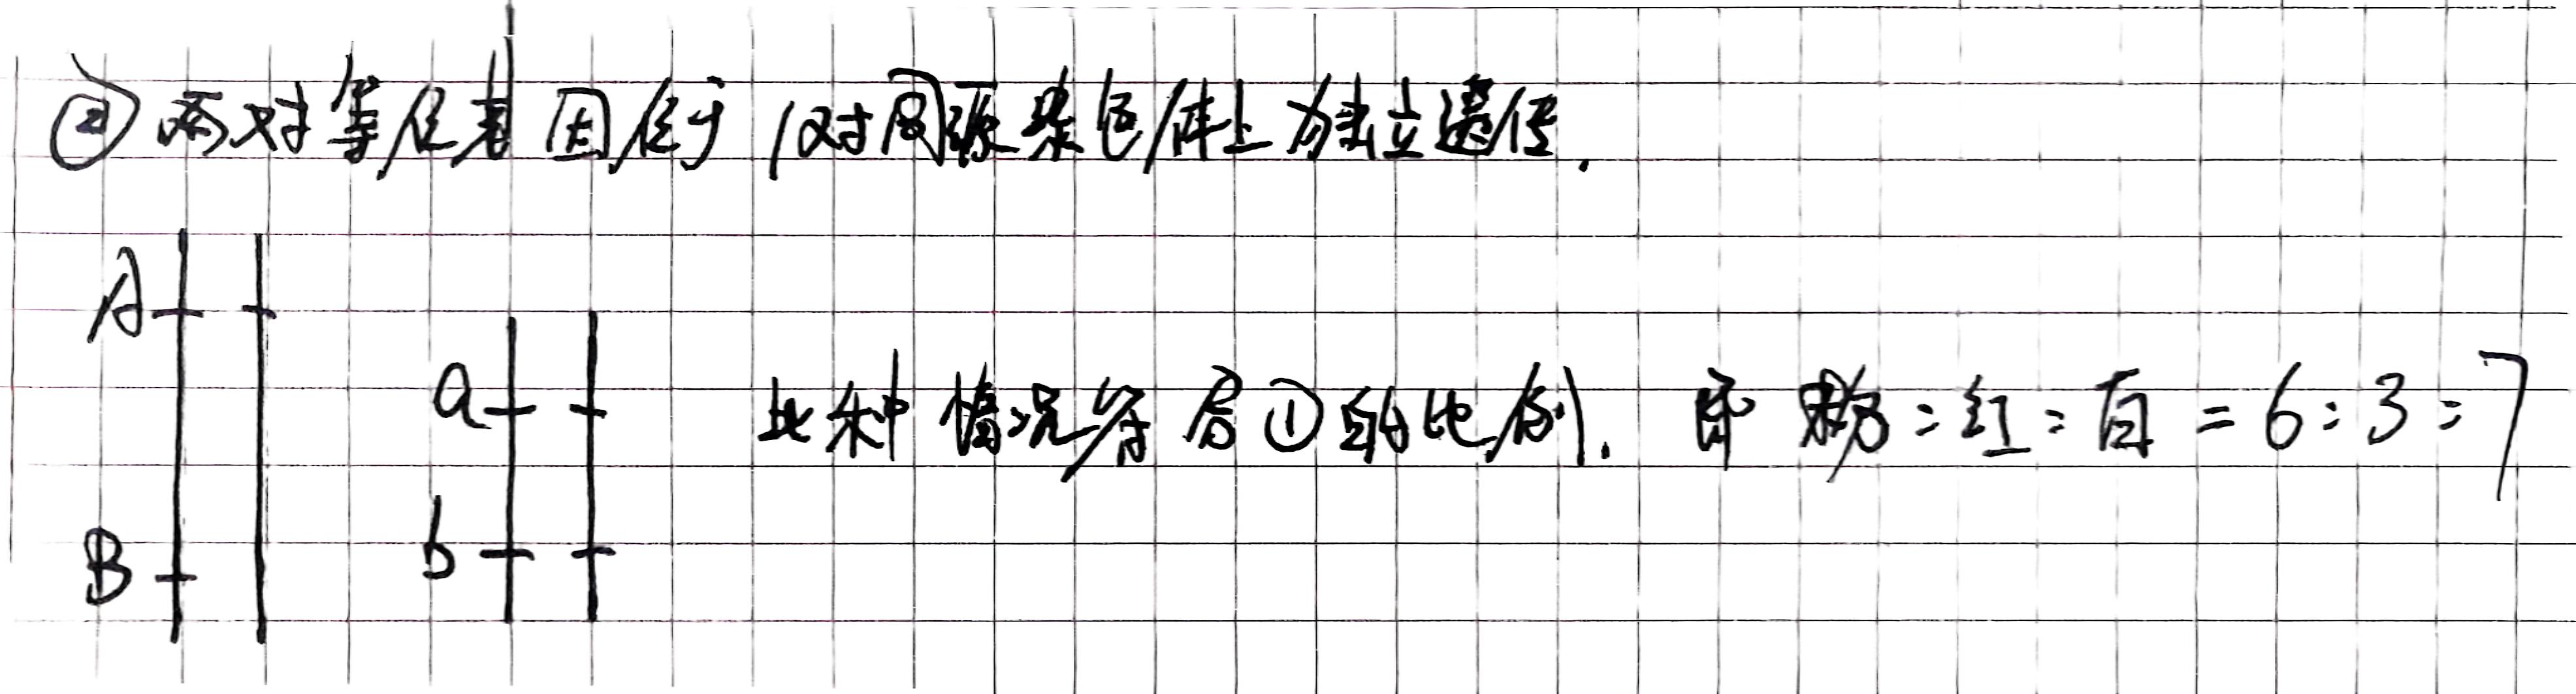 ② 两对等位基因位于1对同源染色体上为独立遗传.
A
a
此种情况符合①的比例. 即 粉:红:白 = 6:3:7
B
b